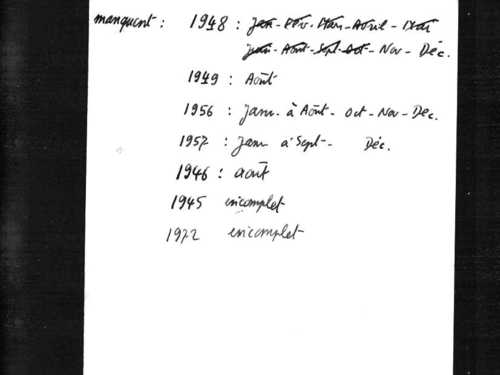 manquent : 1948 : Jan - Fév. Mars - Avril - Mai
Juin - Août - Sept - Oct - Nov - Déc.
1949 : Août
1956 : Janv. à Août - Oct - Nov - Déc.
1957 : Janv à Sept - Déc.
1946 : août
1945 incomplet
1972 incomplet